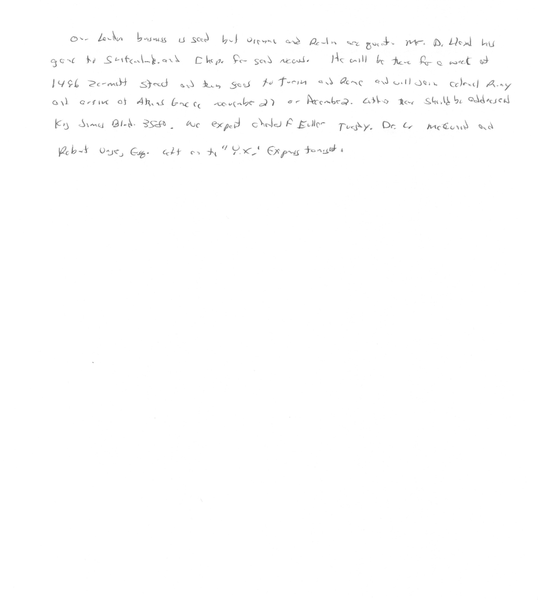 Our London business is good but Vienna and Berlin are quiet. Mr. D. Lloyd has
gone to Switzerland and I hope for good news. He will be there for a week at
1496 Zermott Street and then goes to Turin and Rome and will join Colonel Parry
and arrive at Athens Greece November 27 or December 2. Letters there should be addressed
King James Blvd. 3580. We expect Charles E. Fuller Tuesday. Dr. L. McQuaid and
Robert Unger, Esq. left on the "Y.X." Express tonight.